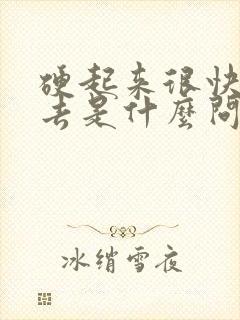 硬起来很快
去是什麼問
冰绡雪夜